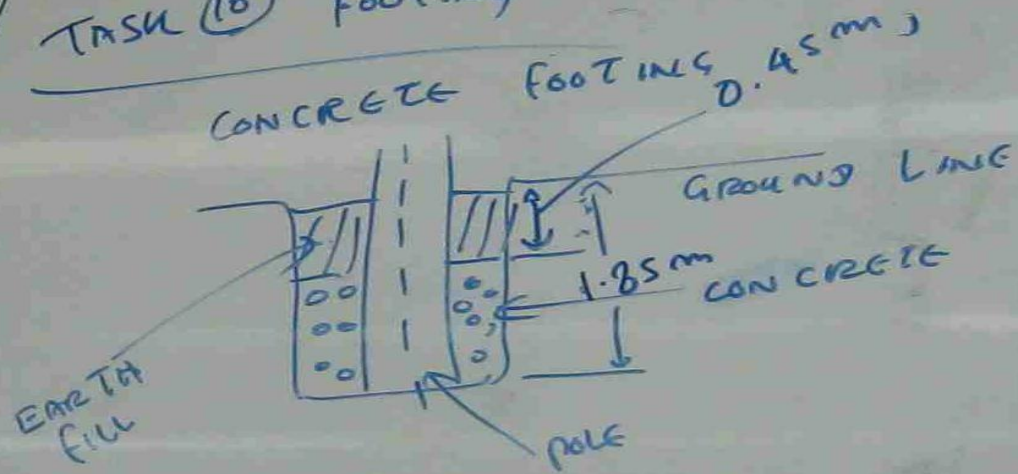 TASK 18
CONCRETE FOOTING
0.45m
GROUND LINE
1.85m
CONCRETE
EARTH
FILL
POLE